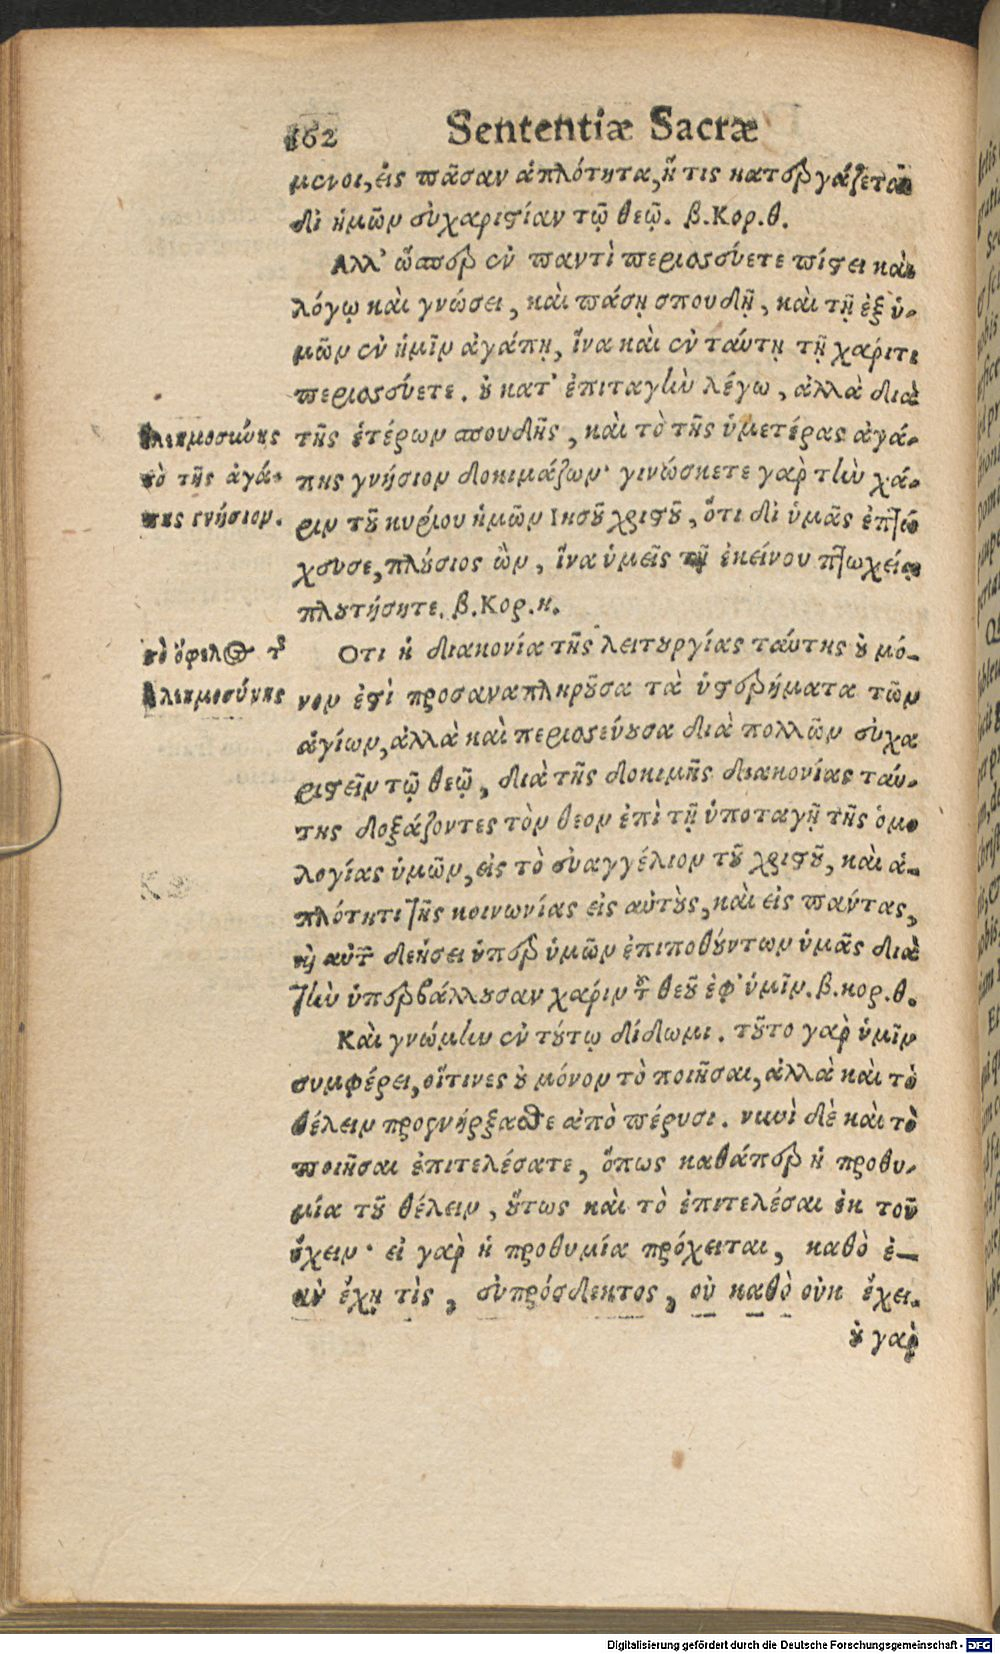 162 Sententiæ Sacræ
μενοι, εἰς πᾶσαν ἁπλότητα, ἥ τις κατεργάζεται
δι ἡμῶν εὐχαριστίαν τῷ θεῷ. β. Κορ. θ.
Αλλ' ὥσπερ ἐν παντὶ περισσεύετε πίστει καὶ
λόγῳ καὶ γνώσει, καὶ πάσῃ σπουδῇ, καὶ τῇ ἐξ ὑ-
μῶν ἐν ἡμῖν ἀγάπῃ, ἵνα καὶ ἐν ταύτῃ τῇ χάριτι
περισσεύετε. οὐ κατ' ἐπιταγὴν λέγω, ἀλλὰ διὰ
ἐλεημοσύνης
τῆς ἑτέρων σπουδῆς, καὶ τὸ τῆς ὑμετέρας ἀγά-
τὸ τῆς ἀγά-
πης γνήσιον δοκιμάζων· γινώσκετε γαρ τὴν χά-
πης γνήσιον.
ριν τοῦ κυρίου ἡμῶν Ιησοῦ χριστοῦ, ὅτι δι ὑμᾶς ἐπτώ
χευσε, πλούσιος ὢν, ἵνα ὑμεῖς τῇ ἐκείνου πτωχείᾳ
πλουτήσητε. β. Κορ. η.
τὸ ὄφελος τῆς
Οτι ἡ διακονία τῆς λειτουργίας ταύτης οὐ μό-
ἐλεημοσύνης
νον ἐστὶ προσαναπληροῦσα τὰ ὑστερήματα τῶν
ἁγίων, ἀλλὰ καὶ περισσεύουσα διὰ πολλῶν εὐχα
ριστεῖν τῷ θεῷ, διὰ τῆς δοκιμῆς διακονίας ταύ-
της δοξάζοντες τὸν θεον ἐπὶ τῇ ὑποταγῇ τῆς ὁμο
λογίας ὑμῶν, εἰς τὸ εὐαγγέλιον τοῦ χριστοῦ, καὶ ἁ-
πλότητι τῆς κοινωνίας εἰς αὐτοὺς, καὶ εἰς παντας,
καὶ αὐτῶν δεήσει ὑπερ ὑμῶν ἐπιποθούντων ὑμᾶς διὰ
τὴν ὑπερβάλλουσαν χάριν τοῦ θεοῦ ἐφ' ὑμῖν. β. κορ. θ.
Καὶ γνώμην ἐν τούτῳ δίδωμι. τοῦτο γαρ ὑμῖν
συμφέρει, οἵτινες οὐ μόνον τὸ ποιῆσαι, ἀλλὰ καὶ τὸ
θέλειν προενήρξασθε ἀπὸ πέρυσι. νυνὶ δὲ καὶ τὸ
ποιῆσαι ἐπιτελέσατε, ὅπως καθάπερ ἡ προθυ-
μία τοῦ θέλειν, οὕτως καὶ τὸ ἐπιτελέσαι ἐκ τοῦ
ἔχειν· εἰ γαρ ἡ προθυμία πρόκειται, καθὸ ἐ-
αν ἔχῃ τὶς, εὐπρόσδεκτος, οὐ καθὸ οὐκ ἔχει.
οὐ γαρ
Digitalisierung gefördert durch die Deutsche Forschungsgemeinschaft - DFG